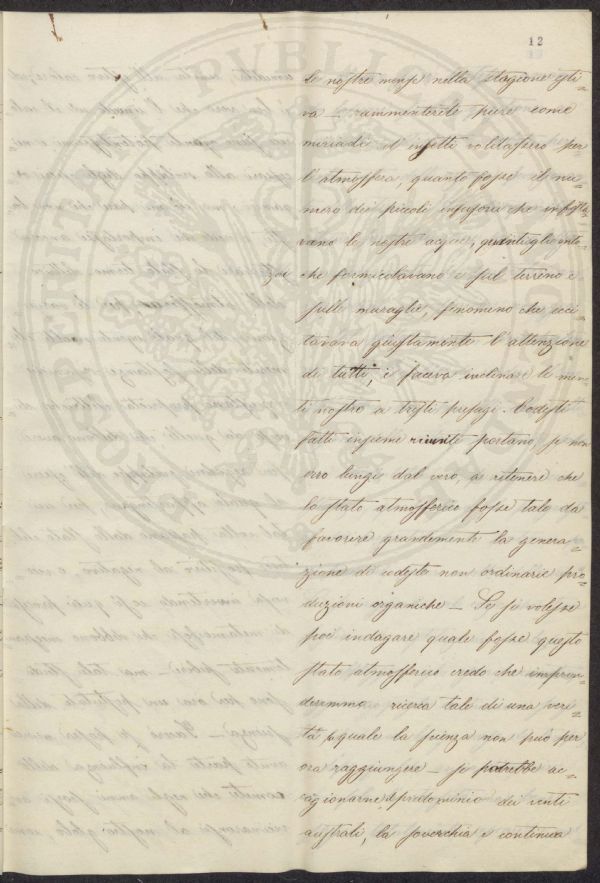 12
le nostre mense nella stagione esti=
va _ rammenterete pure come
miriadi d'insetti volitassero per
l'atmosfera, quanto fosse il nu=
mero dei piccoli infusori che infesta=
vano le nostre acque, quanti gli
zoi che formicolavano e sul terreno e
sulle muraglie, fenomeno che ecci=
tavava giustamente l'attenzione
di tutti, e faceva inclinare le men=
ti nostre a tristi presagi. Codesti
fatti insieme riuniti portano, se non
erro lungi dal vero, a ritenere che
lo stato atmosferico fosse tale da
favorire grandemente la genera=
zione di codeste non ordinarie pro=
duzioni organiche _ Se si volesse
poi indagare quale fosse questo
stato atmosferico credo che impren=
deremmo ricerca tale di una veri=
tà quale la scienza non può per
ora raggiungere _ si potrebbe ac=
cagionarne il predominio dei venti
australi, la soverchia e continua